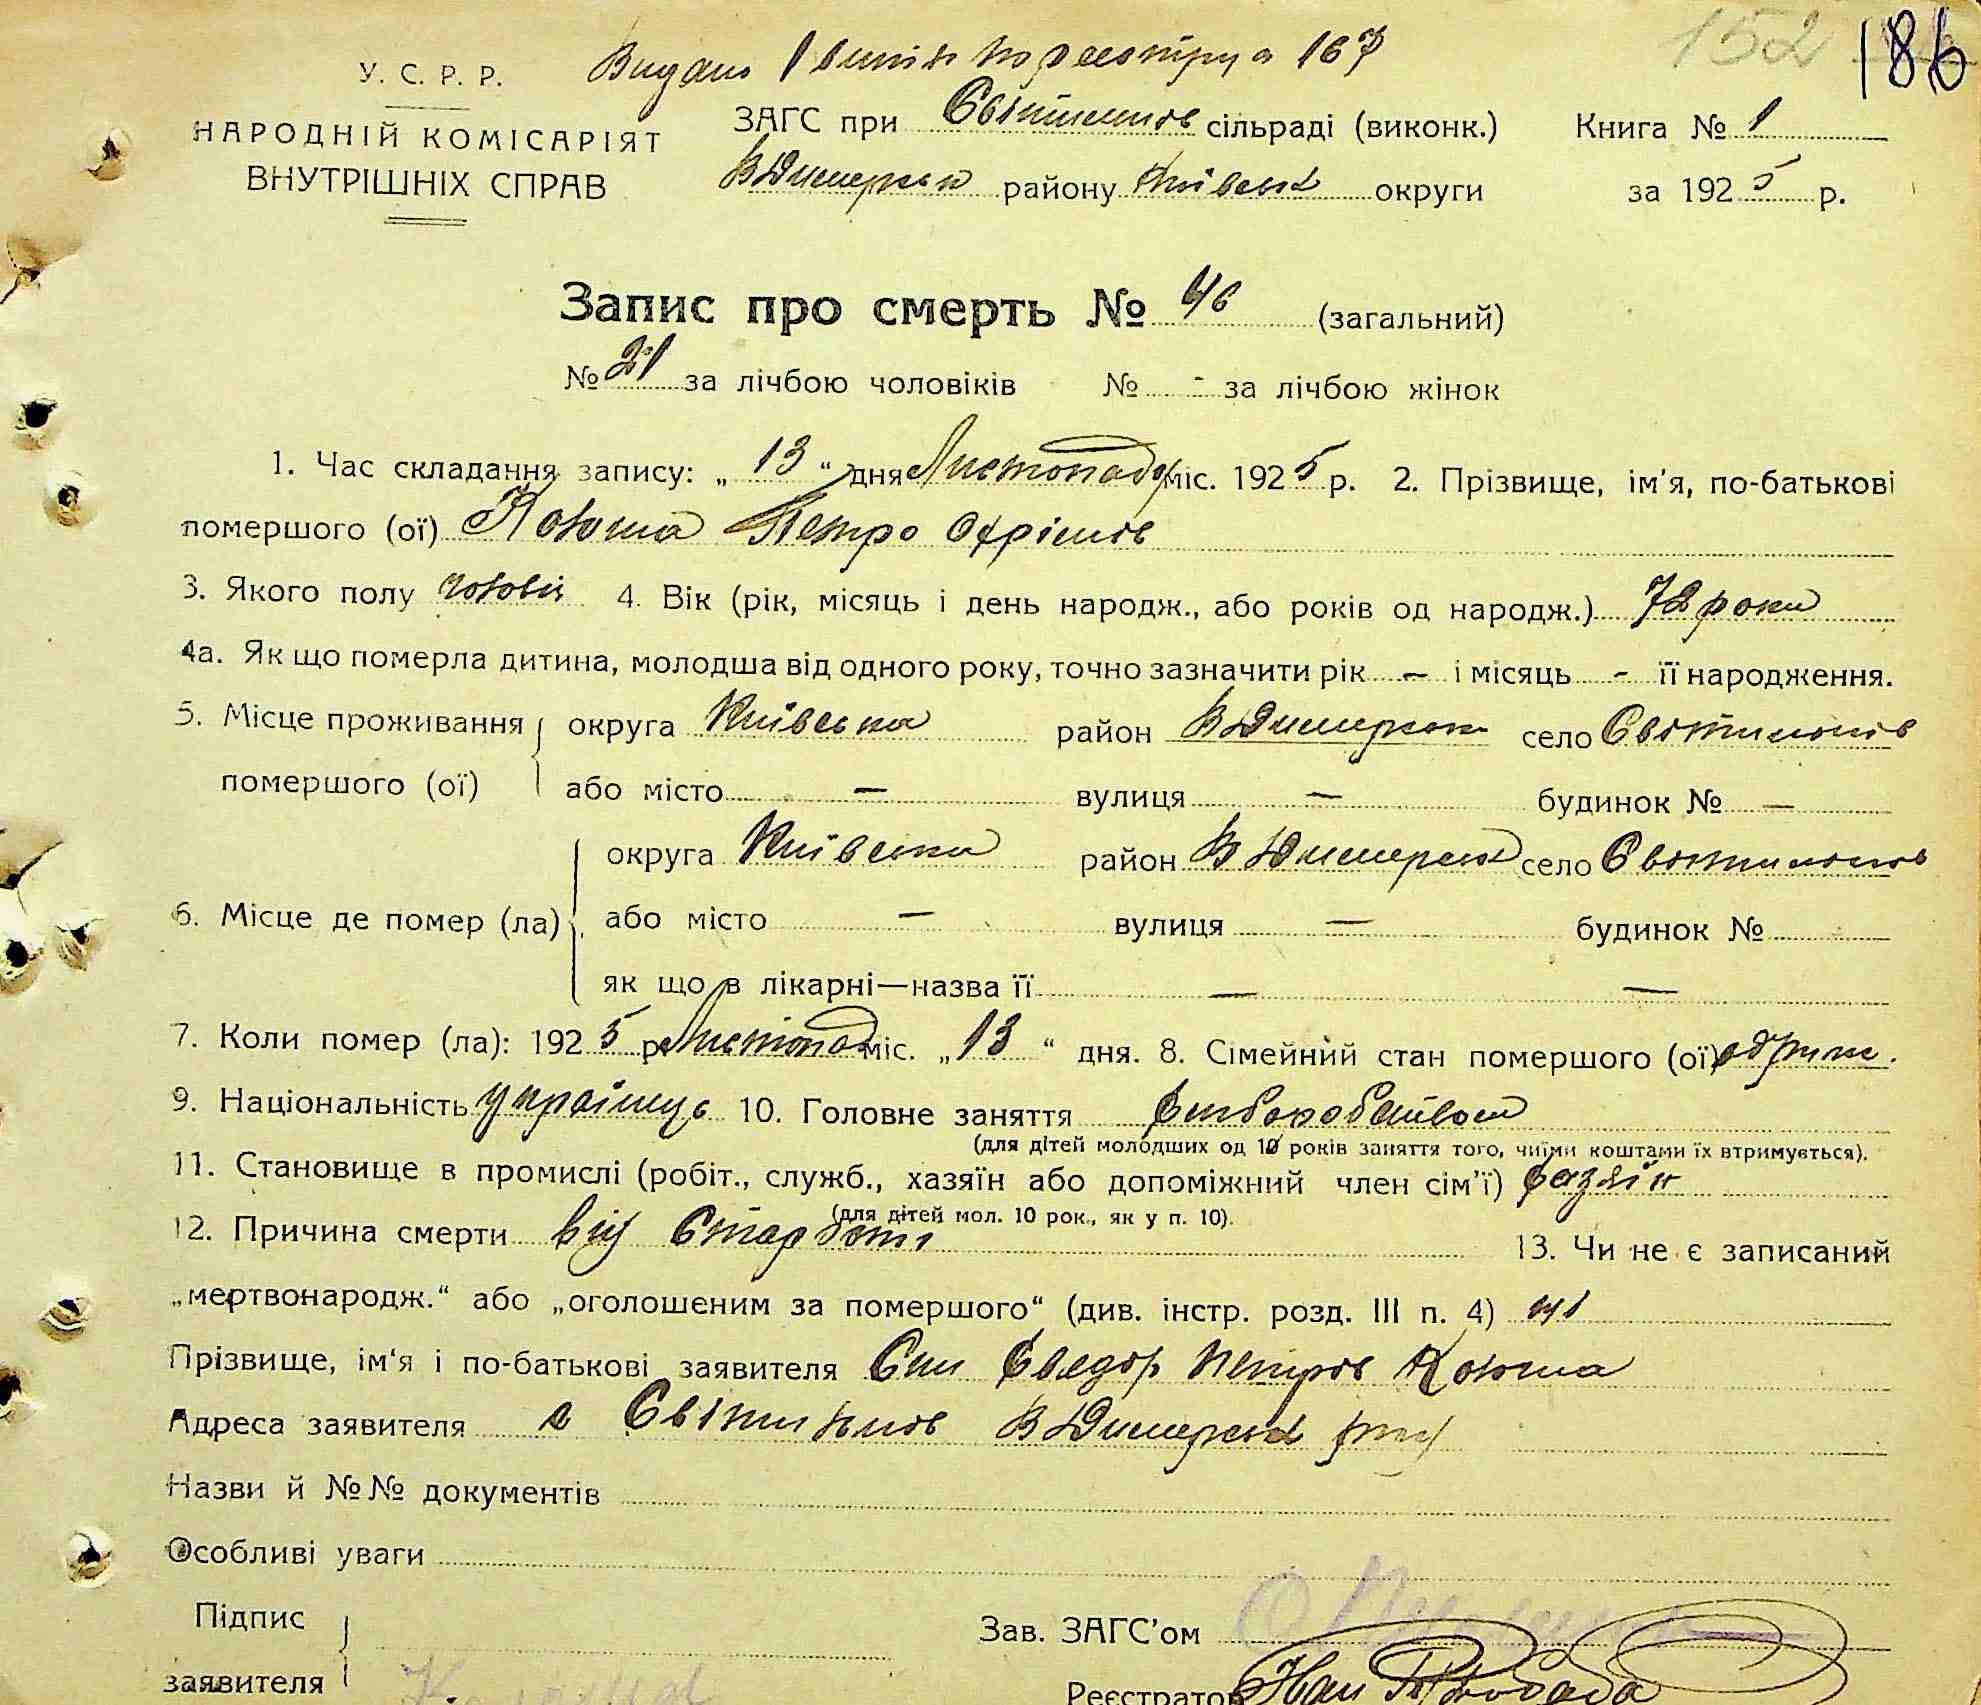 152 186
Видано 1 витяг по реєстру № 167
У. С. Р. Р.
НАРОДНІЙ КОМІСАРІЯТ
ВНУТРІШНІХ СПРАВ
ЗАГС при Світильнов сільраді (виконк.) Книга № 1
В Димерськ району Київськ округи за 1925 р.
Запис про смерть № 46 (загальний)
№ 21 за лічбою чоловіків № - за лічбою жінок
1. Час складання запису: „ 13 “ дня Листопада міс. 1925 р. 2. Прізвище, ім'я, по-батькові
помершого (ої) Петро Охрімов
3. Якого полу чоловіч 4. Вік (рік, місяць і день народж., або років од народж.) 72 роки
4а. Як що померла дитина, молодша від одного року, точно зазначити рік — і місяць - її народження.
5. Місце проживання помершого (ої) округа Київська район В Димерськ село Світильнов
або місто — вулиця — будинок № —
6. Місце де помер (ла) округа Київська район В Димерськ село Світильнов
або місто — вулиця — будинок №
як що в лікарні—назва її — —
7. Коли помер (ла): 1925 р. Листопад міс. „ 13 “ дня. 8. Сімейний стан помершого (ої)
9. Національність українець 10. Головне заняття хліборобство
(для дітей молодших од 10 років заняття того, чиїми коштами їх втримується).
11. Становище в промислі (робіт., служб., хазяїн або допоміжний член сім'ї) хазяїн
(для дітей мол. 10 рок., як у п. 10).
12. Причина смерти від старости 13. Чи не є записаний
„мертвонародж.“ або „оголошеним за помершого“ (див. інстр. розд. III п. 4) ні
Прізвище, ім'я і по-батькові заявителя Син Хведор Петров
Адреса заявителя с Світильнов В Димерськ
Назви й №№ документів
Особливі уваги
Підпис
заявителя
Зав. ЗАГС'ом
Реєстратор